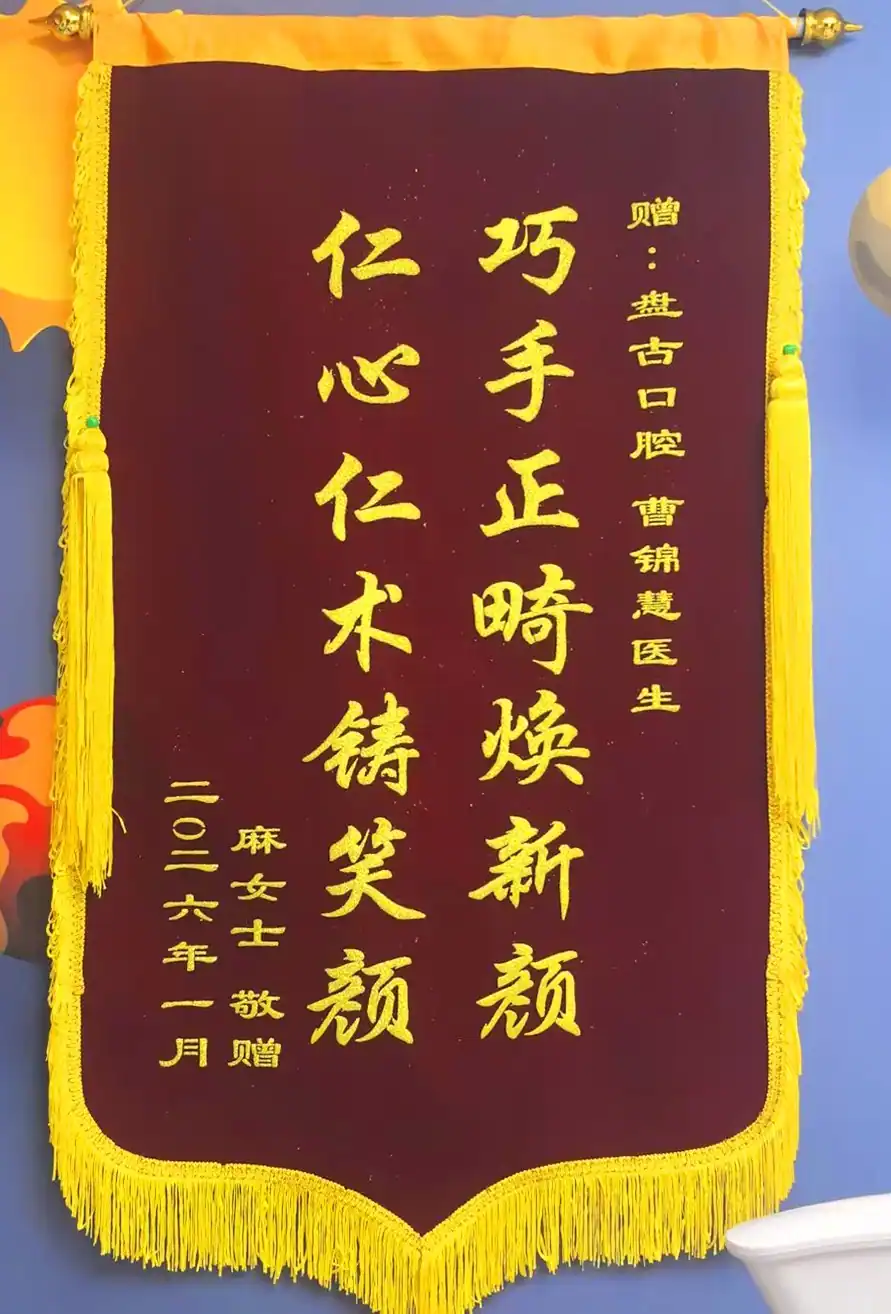 赠：盘古口腔 曹锦慧医生
巧手正畸焕新颜
仁心仁术铸笑颜
麻女士 敬赠
二〇二六年一月